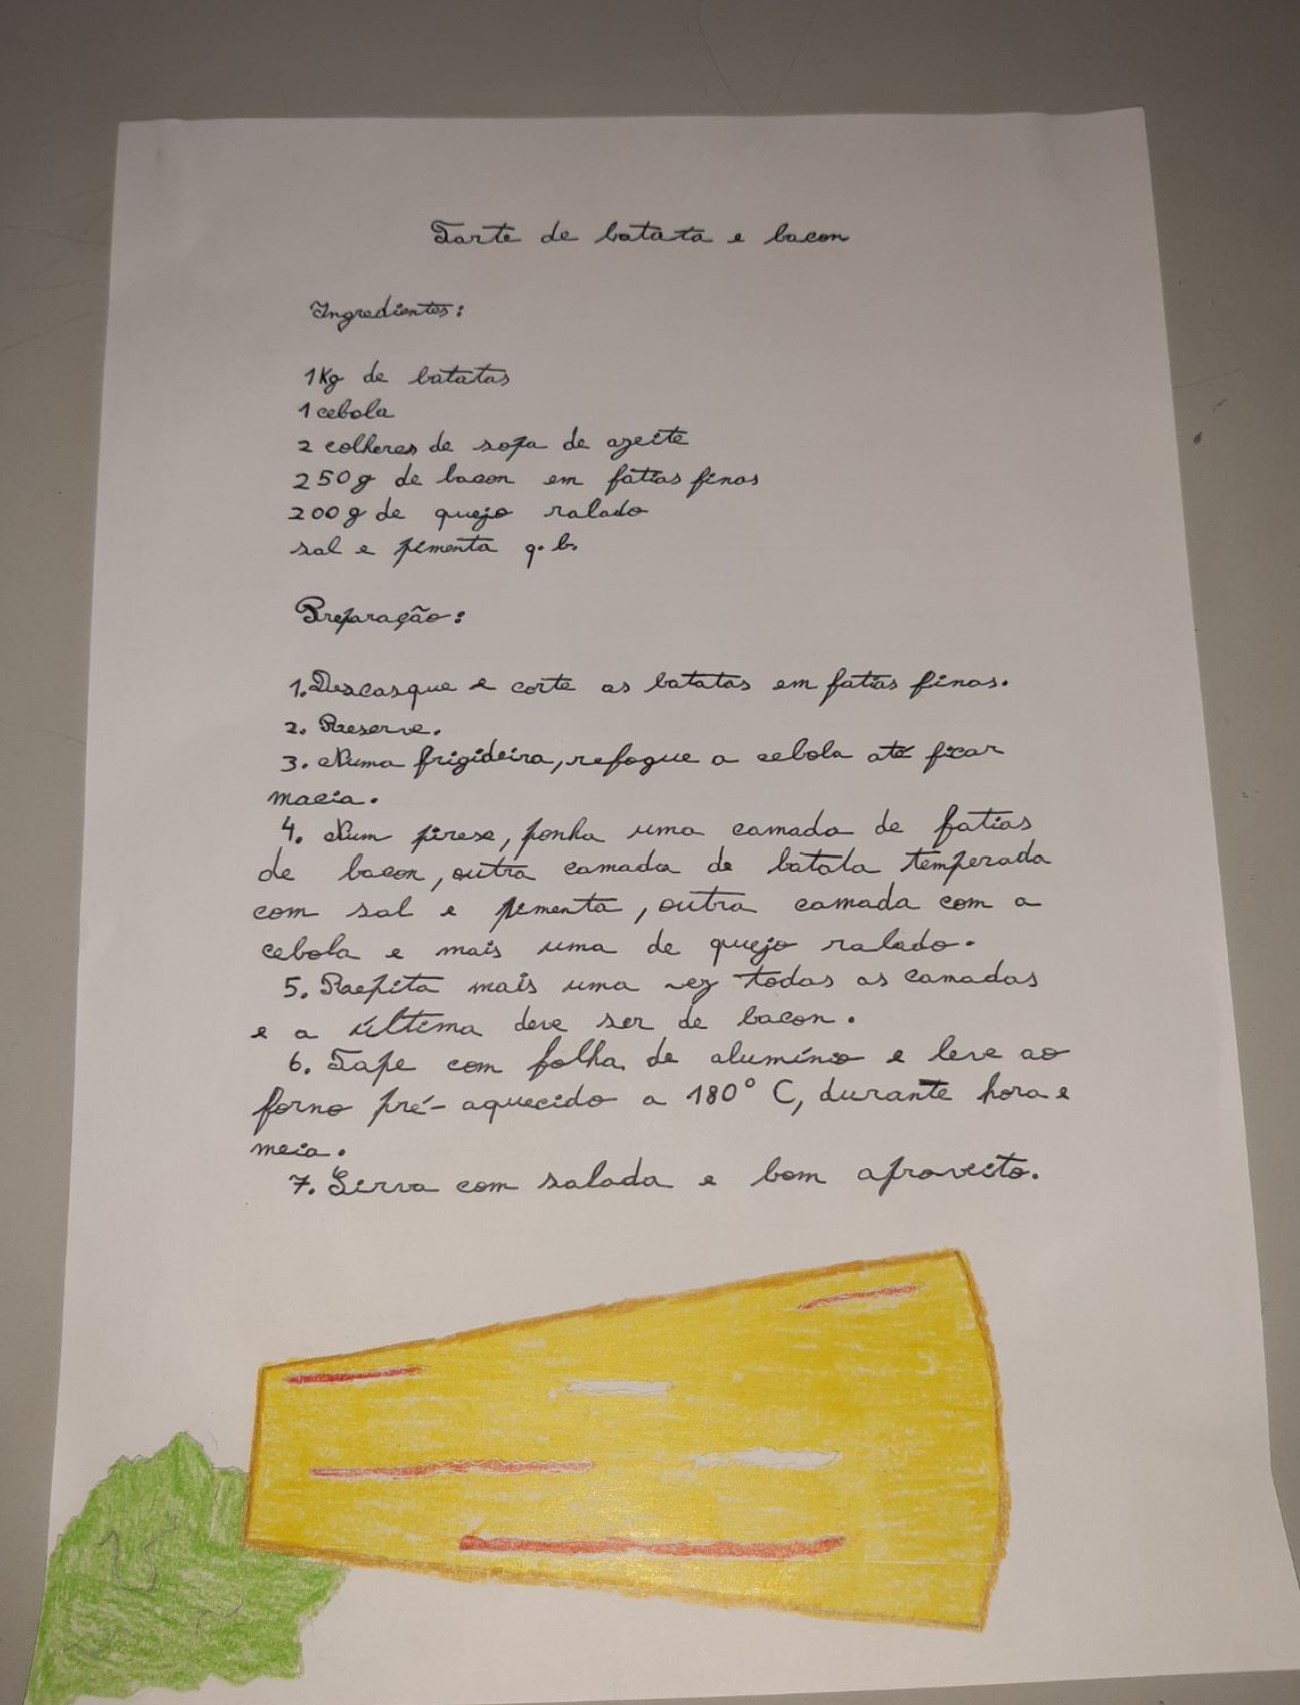 Tarte de batata e bacon
Ingredientes:
1Kg de batatas
1 cebola
2 colheres de sopa de azeite
250g de bacon em fatias finas
200g de quejo ralado
sal e pimenta q.b.
Preparação:
1. Descasque e corte as batatas em fatias finas.
2. Reserve.
3. Numa frigideira, refogue a cebola até ficar
macia.
4. Num pirese, ponha uma camada de fatias
de bacon, outra camada de batata temperada
com sal e pimenta, outra camada com a
cebola e mais uma de quejo ralado.
5. Repita mais uma vez todas as camadas
e a última deve ser de bacon.
6. Tape com folha de alumínio e leve ao
forno pré-aquecido a 180° C, durante hora e
meia.
7. Sirva com salada e bom aproveito.